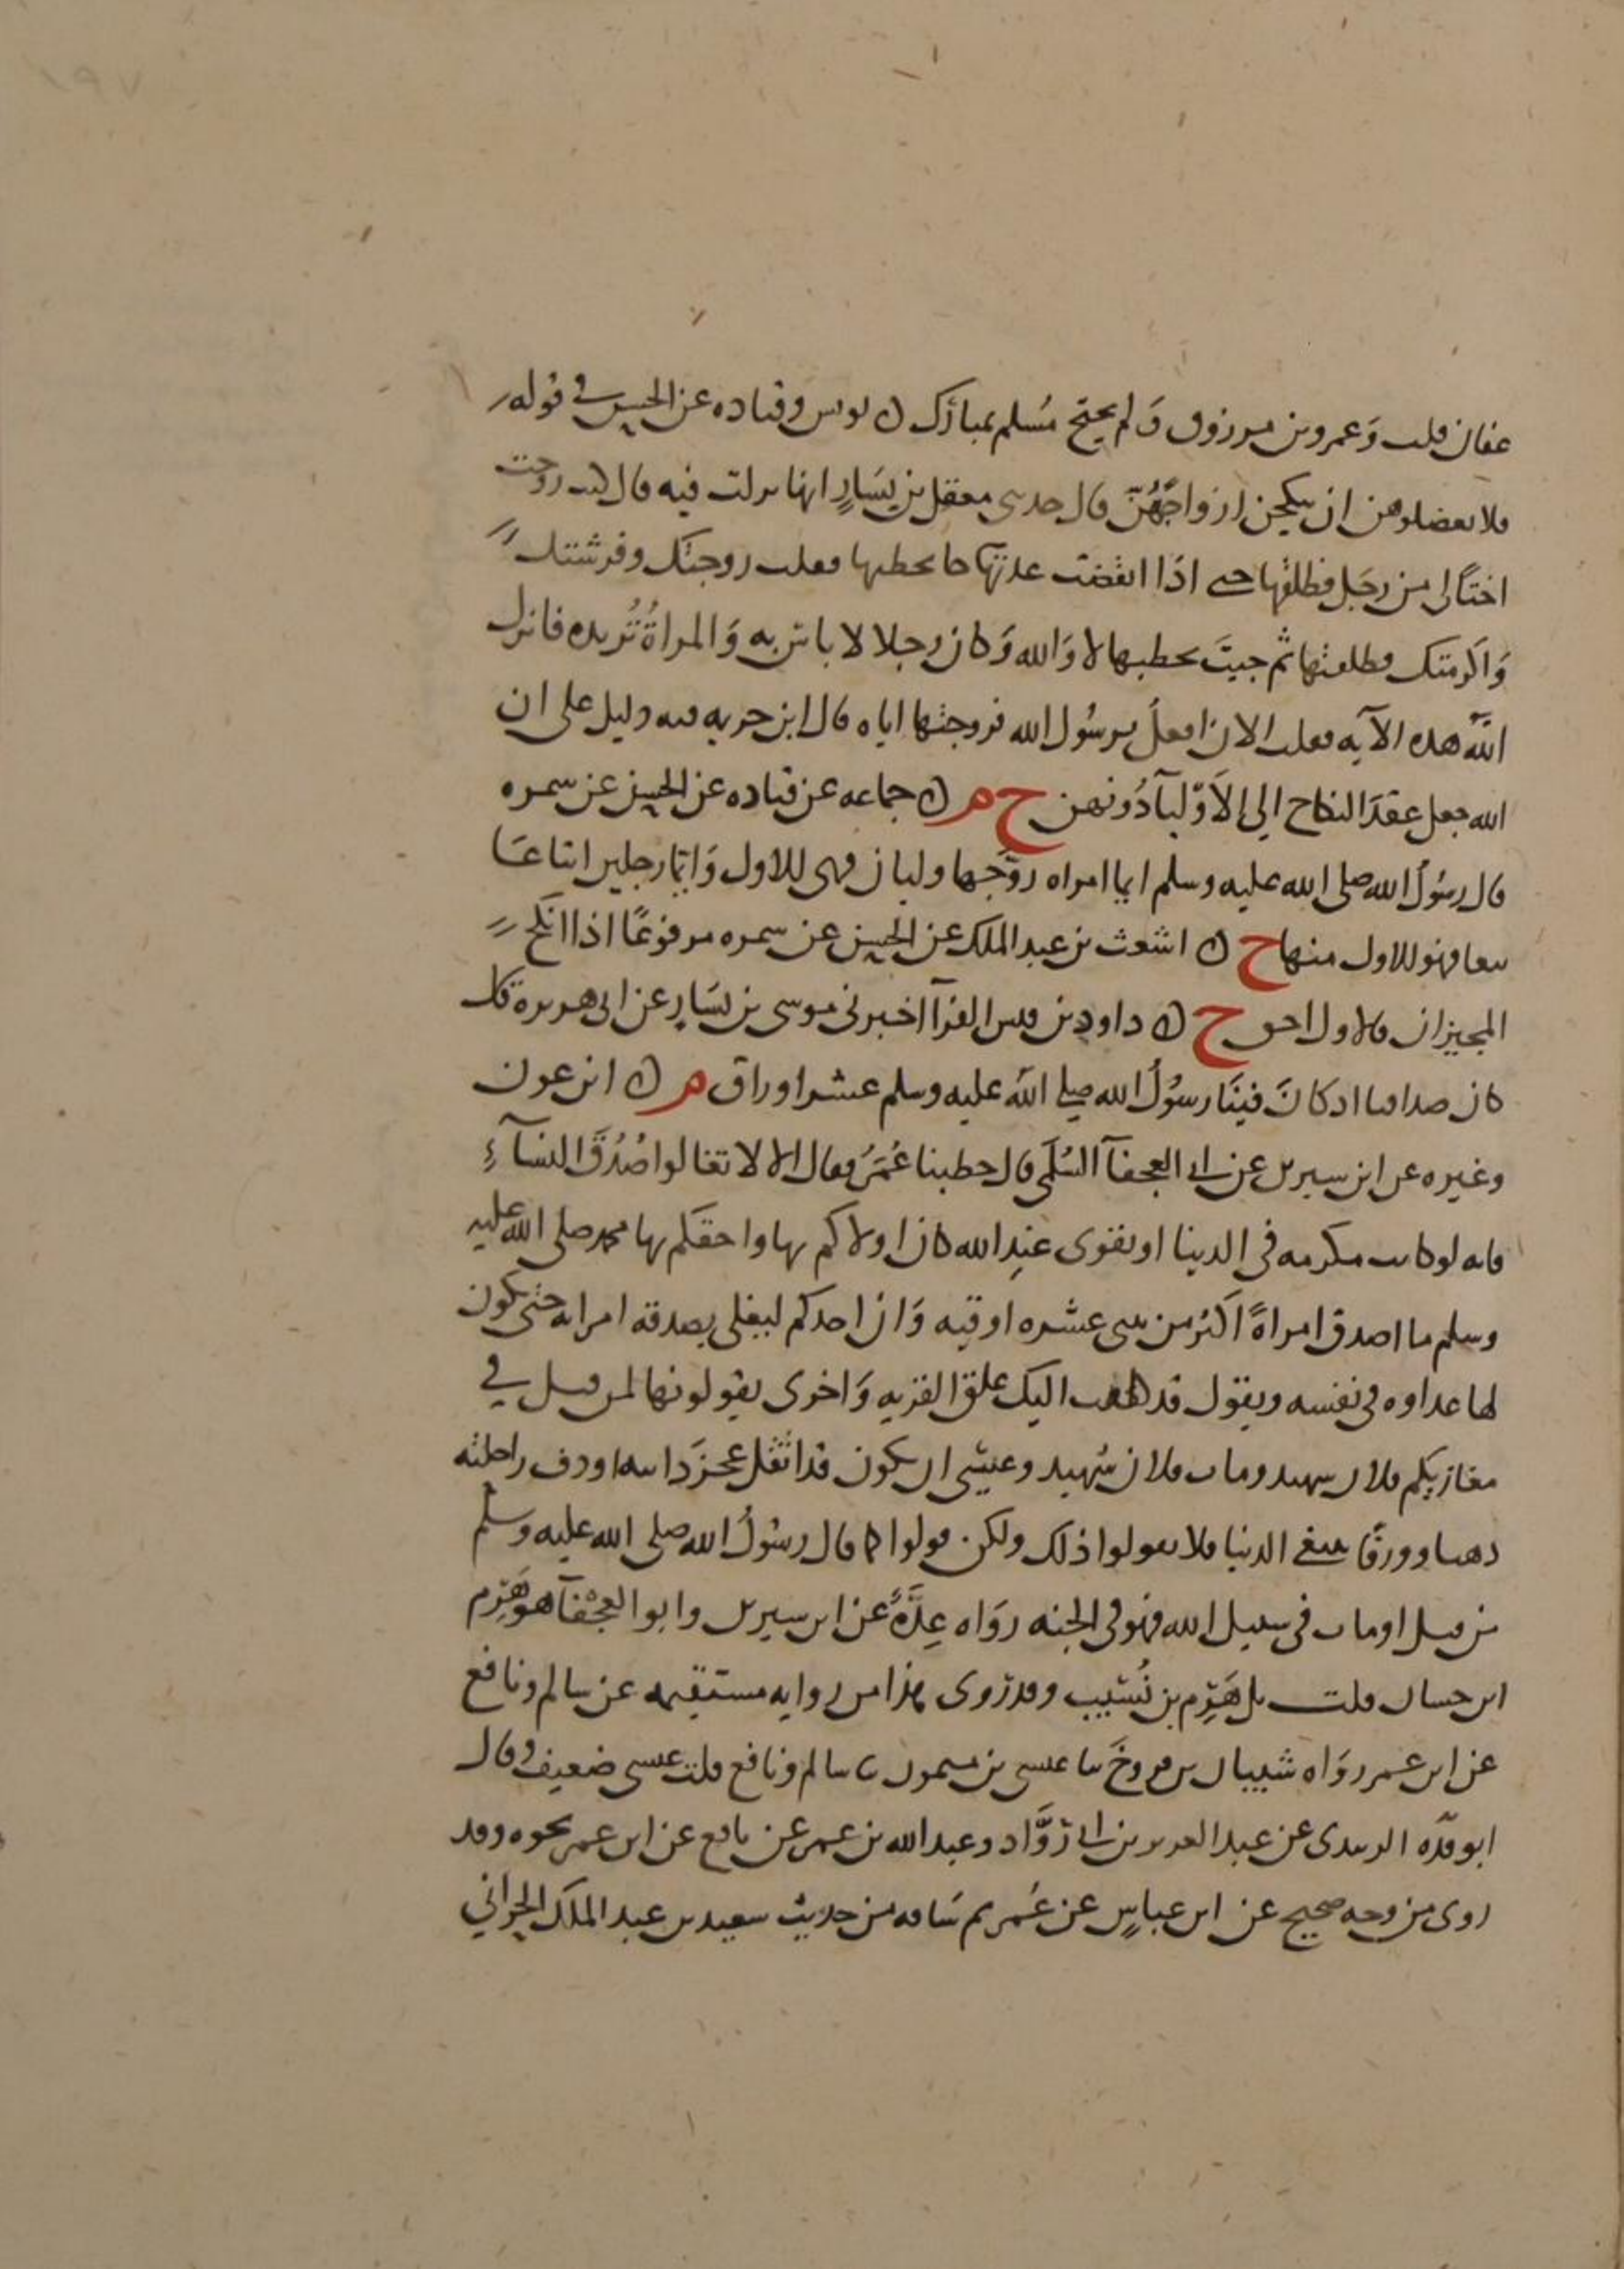 عفان قلت وَعمرو بن مرزوق وَلم يحتج مُسلم بمبارَك ن يونس وقتاده عن الحسن في قوله
فلا تعضلوهن ان ينكحن ازواجَهُنّ قال حدثنى معقل بن يَسَارٍ انها نزلت فيه قال كنت زوجت
اختًا لى من رجَل فطلقها حتى اذا انقضت عدتها جا يخطبها فقلت زوجتك وفرشتك
وَاكرمتك فطلقتها ثم جيتَ تخطبها لا وَالله وَكان رجلا لا باس به وَالمراةُ تُريده فانزل
اللهُ هذه الآيه فقلت الان افعلُ يرسُول الله فزوجتها اياه قال ابن خزيمه فيه دليل على ان
الله جعل عقدَ النكاح الى الاَوّليآ دُونهن خ م ن جماعه عن قتاده عن الحسن عن سمره
قال رسُولُ الله صلى الله عليه وسلم ايما امراه زوّجها وليان فهى للاول وَايما رجلين ابتاعَا
بيعا فهو للاول منهما خ ن اشعث بن عبد الملك عن الحسن عن سمره مرفوعًا اذا انكح
المجيزان فالاول احق خ ن داود بن قيس الفرآ اخبرنى موسى بن يَسَارٍ عن ابى هريرة قال
كان صداقنا اذ كانَ فينَا رسوُلُ الله صلى اللهُ عليه وسلم عشر اوراق م ن ابن عون
وغيره عن ابن سيرين عن ابى العجفآ السُّلَمى قال خطبنا عُمَرُ فقال الا لا تغالوا صُدُقَ النسَآءِ
فانه لو كانت مكرمه فى الدنيا او تقوى عند الله كان اولاكم بها واحقكم بها محمد صلى الله عليه
وسلم ما اصدق امراةً اكثر من ثنتى عشره اوقيه وَان احدكم ليغلى بصدقه امراته حتى تكون
لها عداوه فى نفسه ويقول قد كلفت اليك علق القربه وَاخرى يقولونها لمن قتل في
مغازيكم فلان شهيد ومات فلان شهيد وعسى ان يكون قد اثقل عجزَ دابته او دف راحلته
ذهبا وورقًا يبتغى الدنيا فلا تقولوا ذلك ولكن قولوا كما قال رسُولُ الله صلى الله عليه وسلم
من قتل او مات فى سبيل الله فهو فى الجنه روَاه عِدَّةٌ عن ابن سيرين وابو العجْفآ هو هَرِم
ابن حسان قلت بل هَرِم بن نُسَيب وقد رُوى هذا من روايه مستقيمه عن سالم ونافع
عن ابن عمر روَاه شيبان بن فروخَ نا عيسى بن ميمون نا سالم ونافع قلت عيسى ضعيف وقال
ابو قره الزبيدى عن عبد العزيز بن ابى رَوَّاد وعبد الله بن عمر عن نافع عن ابن عمر نحوه وقد
روى من وجه صحيح عن ابن عباسٍ عن عُمر ثم سَاقه من حديث سعيد بن عبد الملك الحرانى